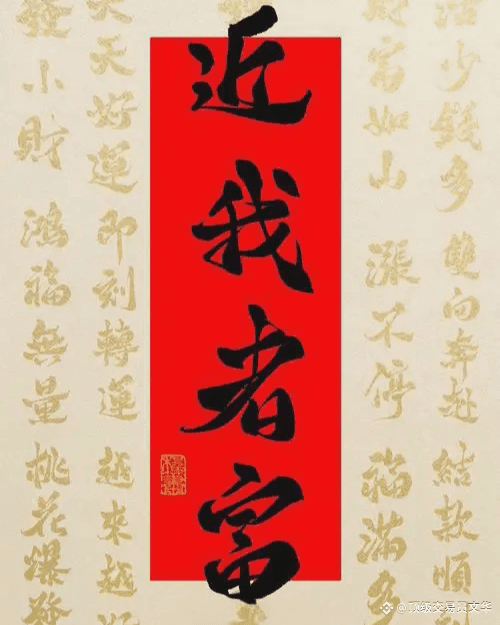 活少錢多 雙向奔赴 結款順
財富如山 漲不停 福滿多
近我者富
天天好運 即刻轉運 越來越
發小財 鴻福無量 桃花爆發
@顶级交易员文华